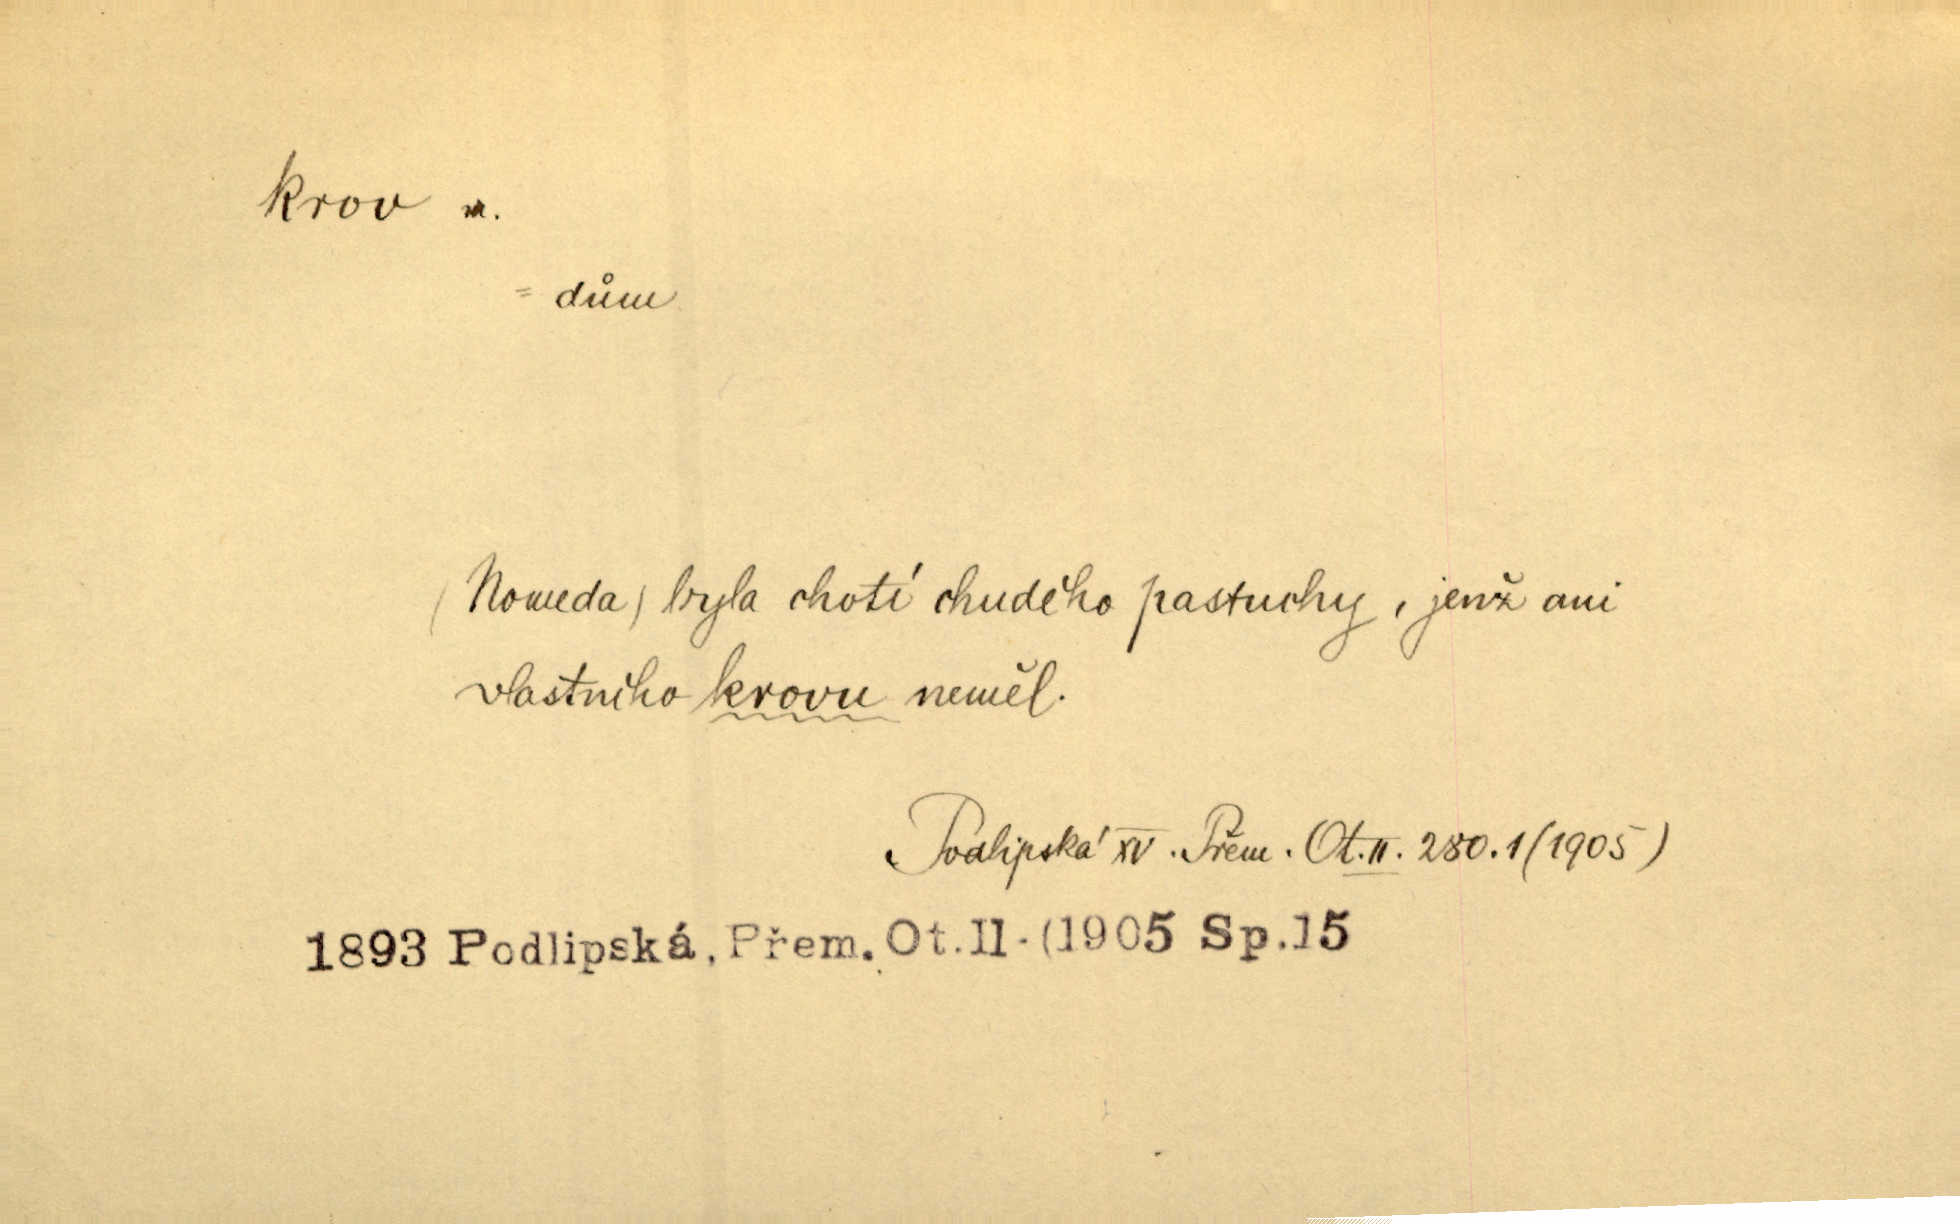 krov m.
= dům
(Nomeda) byla chotí chudého pastuchy, jenž ani
vlastního krovu neměl.
Podlipská XV. Přem. Ot. II. 280.1 (1905)
1893 Podlipská, Přem. Ot. II. (1905 Sp. 15